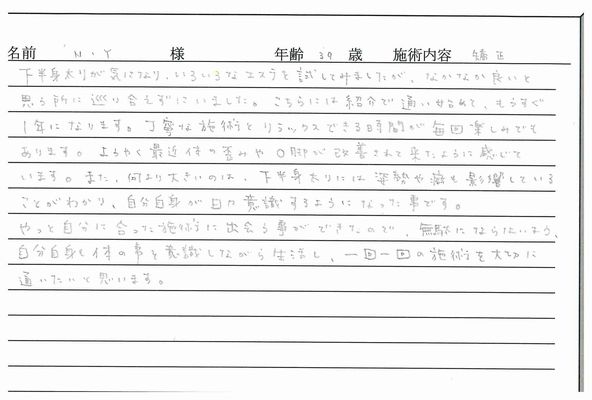 名前 N・Y 様 年齢 39 歳 施術内容 矯正
下半身太りが気になり、いろいろなエステを試してみましたが、なかなか良いと
思う所に巡り合えずにいました。こちらには紹介で通い始めて、もうすぐ
1年になります。丁寧な施術とリラックスできる時間が毎回楽しみでも
あります。ようやく最近体の歪みやO脚が改善されて来たように感じて
います。また、何より大きいのは、下半身太りには姿勢や癖も影響している
ことがわかり、自分自身が日々意識するようになった事です。
やっと自分に合った施術に出会う事ができたので、無駄にならないよう、
自分自身も体の事を意識しながら生活し、一回一回の施術を大切に
通いたいと思います。